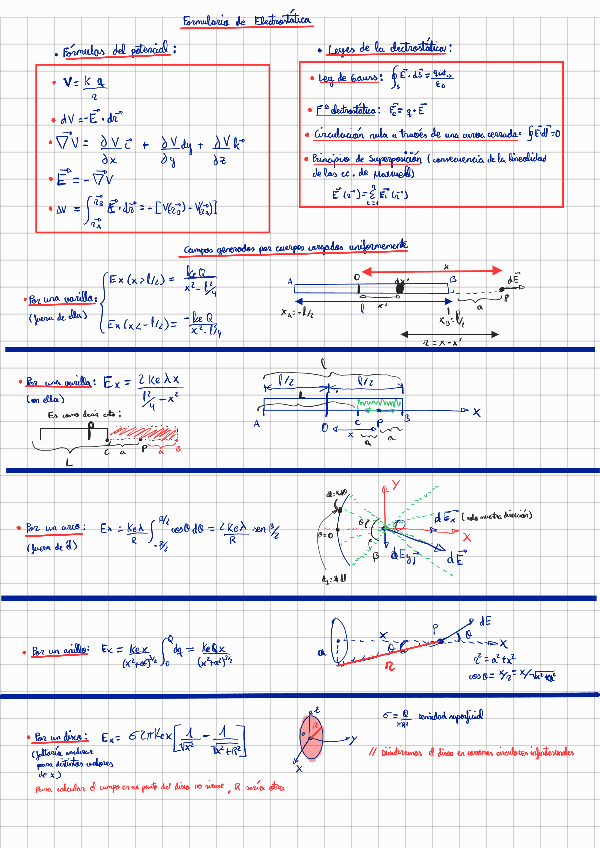 Formulario de Electrostática
• Fórmulas del potencial:
V = k q / r
• dV = -E⃗ · dr⃗
• ∇⃗V = ∂V/∂x i⃗ + ∂V/∂y dy + ∂V/∂z k⃗
• E⃗ = -∇⃗V
• ΔV = ∫ E⃗ · dr⃗ = -[V(r_B) - V(r_A)]
r_B
r_A
• Leyes de la electrostática:
• Ley de Gauss: ∮_S E⃗ · dS⃗ = q_int / ε₀
• Fª electrostática: F⃗e = q · E⃗
• Circulación nula a través de una curva cerrada: ∮E⃗dl⃗=0
• Principio de Superposición (consecuencia de la linealidad
de las ec. de Maxwell)
E⃗(r⃗) = Σ E⃗i(r⃗)
n
i=1
Campos generados por cuerpos cargados uniformemente
• Por una varilla:
(fuera de ella)
Ex(x>l/2) = ke Q / (x² - l²/4)
Ex(x<-l/2) = -ke Q / (x² - l²/4)
x
A O dx' B dE⃗
x_A = -l/2 l x' x_B = l/2 a P
r = x - x'
• Por una varilla: Ex = 2 Ke λ x / (l²/4 - x²)
(en ella)
Es como decir esto:
P
C a P a B
L
l
l/2 l/2
L
A O C P B X
x a a
• Por un arco: Ex = Ke λ / R ∫ cosθ dθ = 2 Ke λ / R sen β/2
β/2
-β/2
(fuera de él)
θ=0
Y
dE⃗x (solo nuestra dirección)
X
β dEy j⃗ dE⃗
• Por un anillo: Ex = ke x / (x²+a²)^3/2 ∫ dq = ke Q x / (x²+a²)^3/2
Q
0
a x P dE
θ θ X
r
r² = a² + x²
cosθ = x/r = x/√x²+a²
• Por un disco: Ex = σ2π Ke x [1/√x² - 1/√x²+R²]
(faltaría analizar
para distintos valores
de x)
z
R
y
X
σ = Q / πR² densidad superficial
// Dividiremos el disco en coronas circulares infinitesimales
Para calcular el campo en un punto del disco no , R sería otra